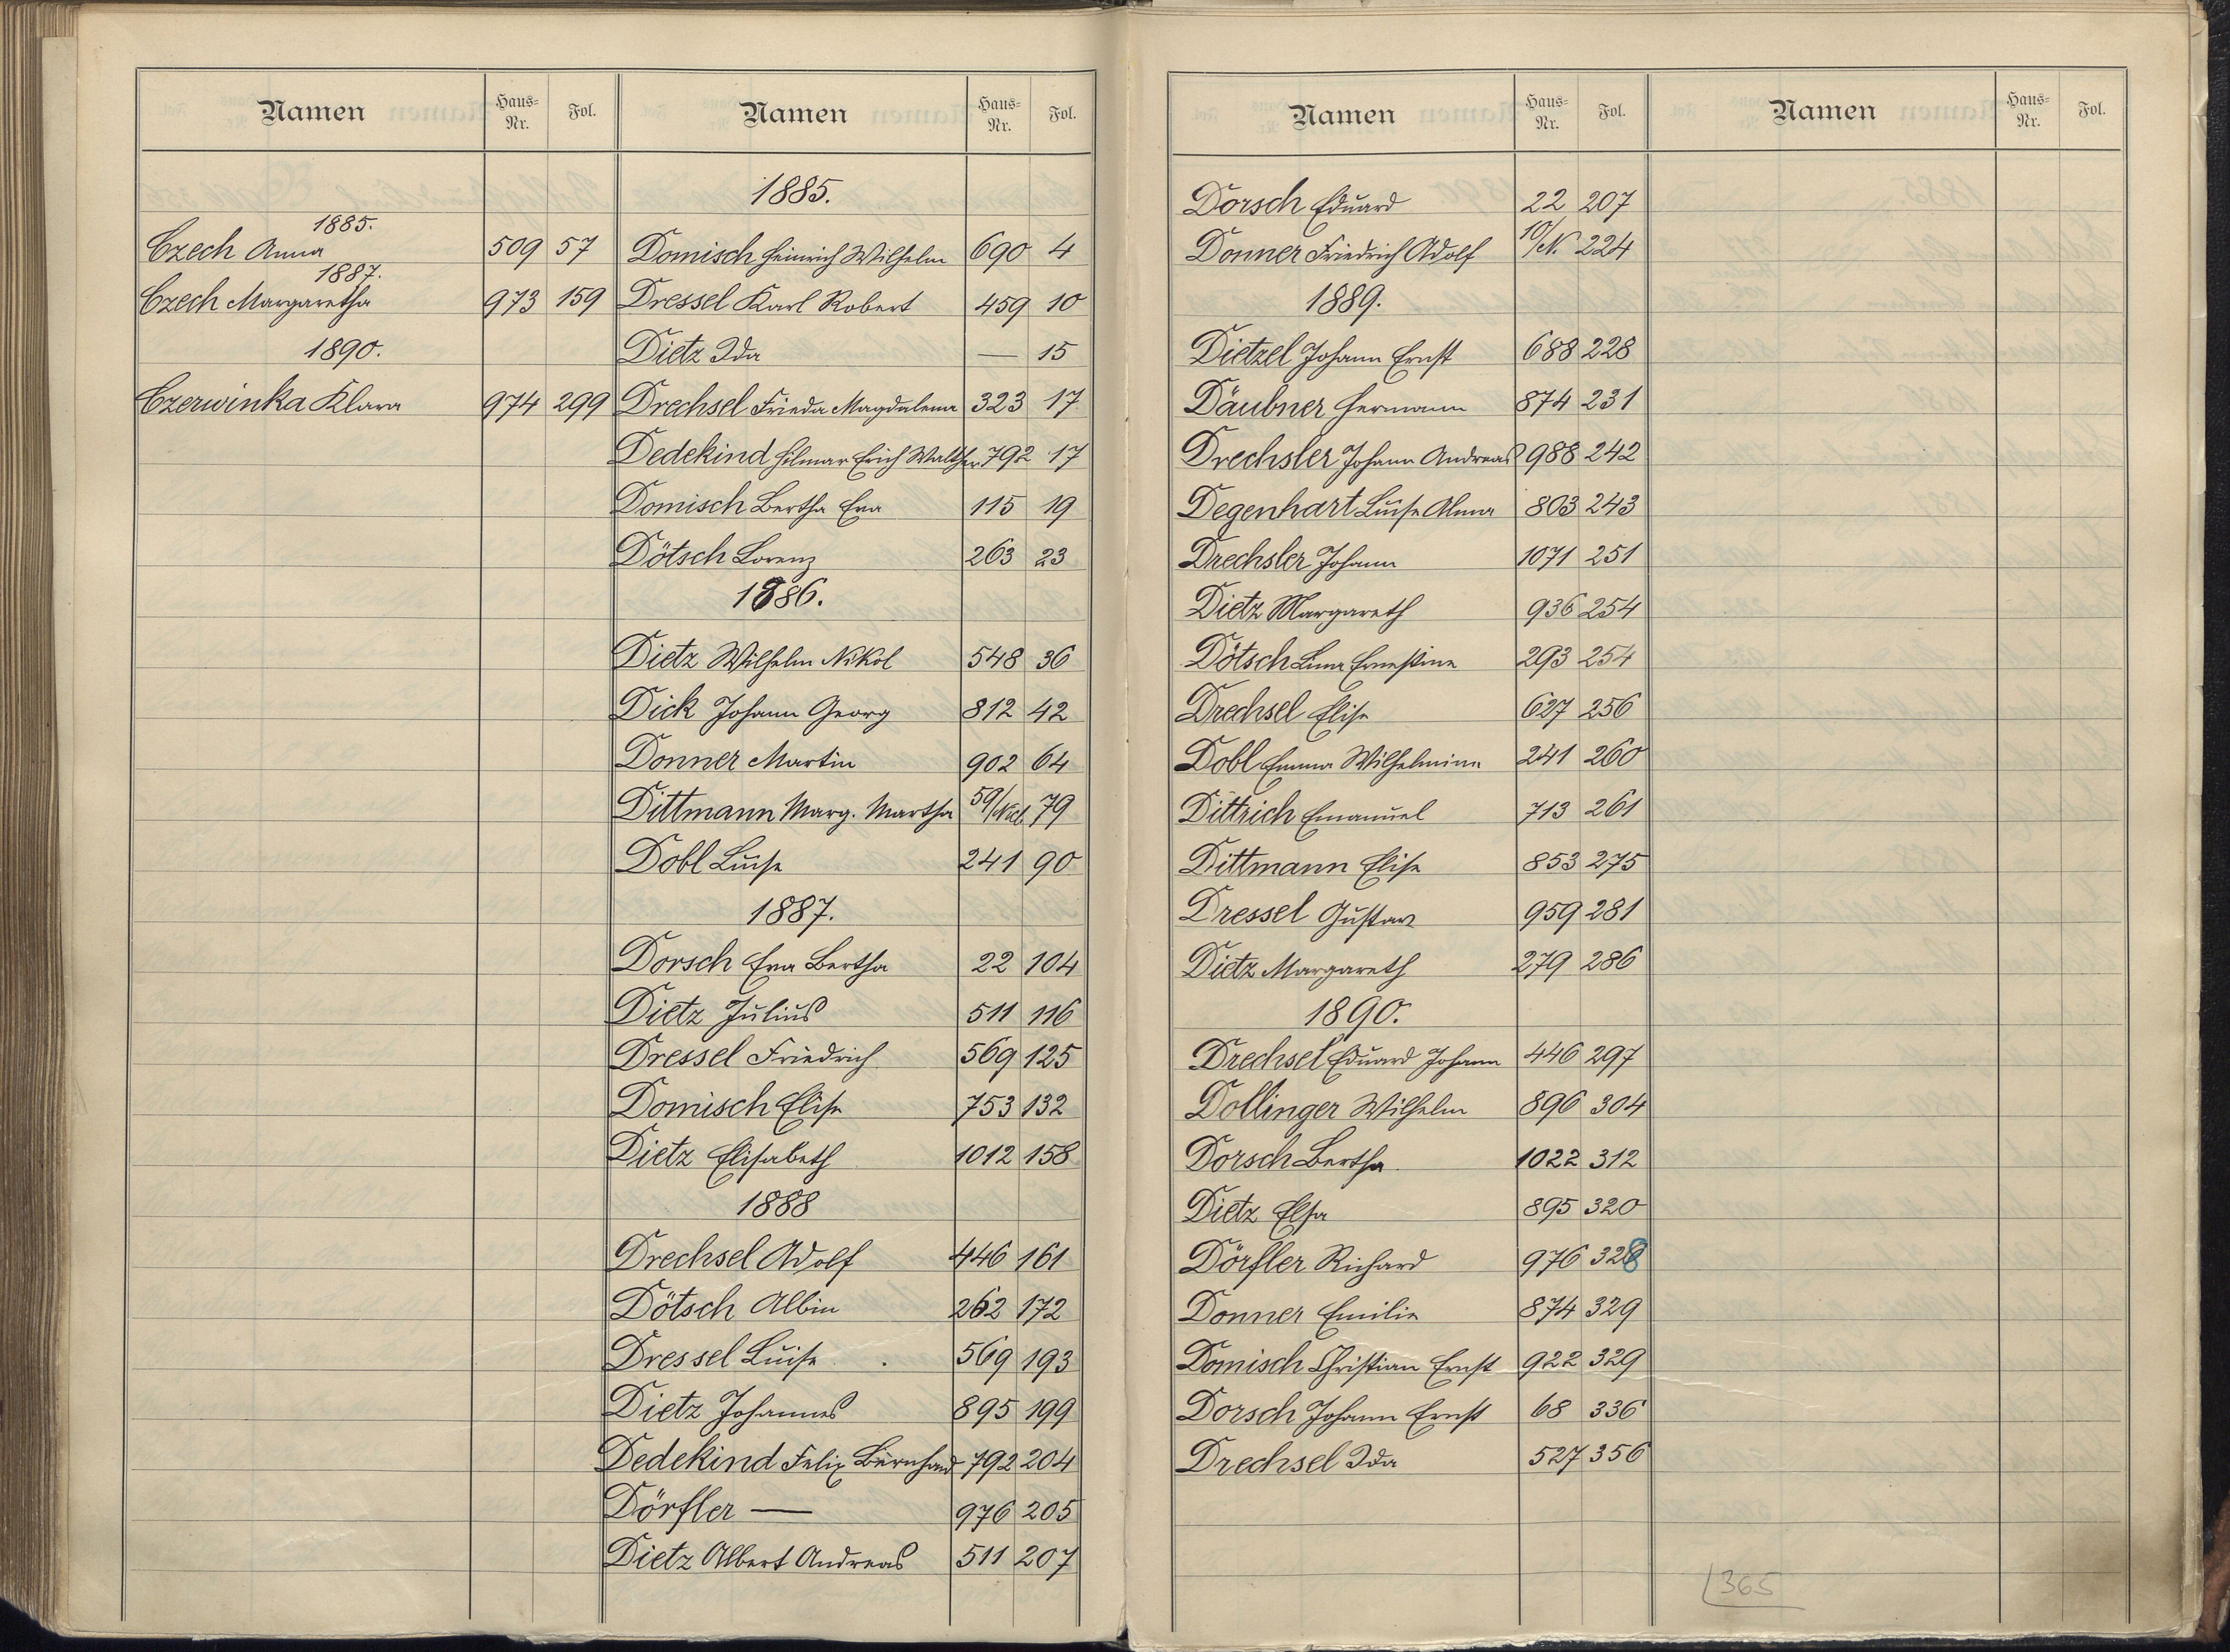 Namen Haus-Nr. Fol.
1885.
Czech Anna 509 57
1887.
Czech Margaretha 973 159
1890.
Czerwinka Klara 974 299
Namen Haus-Nr. Fol.
1885.
Domisch Heinrich Wilhelm 690 4
Dressel Karl Robert 459 10
Dietz Ida — 15
Drechsel Frieda Magdalena 323 17
Dedekind Hilmar Erich Walther 792 17
Domisch Bertha Eva 115 19
Dötsch Lorenz 263 23
1886.
Dietz Wilhelm Nikol 548 36
Dick Johann Georg 812 42
Donner Martin 902 64
Dittmann Marg. Martha 59/ 79
Dobl Luise 241 90
1887.
Dorsch Eva Bertha 22 104
Dietz Julius 511 116
Dressel Friedrich 569 125
Domisch Elise 753 132
Dietz Elisabeth 1012 158
1888
Drechsel Adolf 446 161
Dötsch Albin 262 172
Dressel Luise . 569 193
Dietz Johannes 895 199
Dedekind Felix Bernhard 792 204
Dörfler — 976 205
Dietz Albert Andreas 511 207
Namen Haus-Nr. Fol.
Dorsch Eduard 22 207
Donner Friedrich Adolf 10/N. 224
1889.
Dietzel Johann Ernst 688 228
Däubner Hermann 874 231
Drechsler Johann Andreas 988 242
Degenhart Luise Alma 803 243
Drechsler Johann 1071 251
Dietz Margareth 936 254
Dötsch Lina Ernestine 293 254
Drechsel Elise 627 256
Dobl Emma Wilhelmine 241 260
Dittrich Emanuel 713 261
Dittmann Elise 853 275
Dressel Gustav 959 281
Dietz Margareth 279 286
1890.
Drechsel Eduard Johann 446 297
Dollinger Wilhelm 896 304
Dorsch Bertha. 1022 312
Dietz Elsa 895 320
Dörfler Richard 976 328
Donner Emilie 874 329
Domisch Christian Ernst 922 329
Dorsch Johann Ernst 68 336
Drechsel Ida 527 356
Namen Haus-Nr. Fol.
365